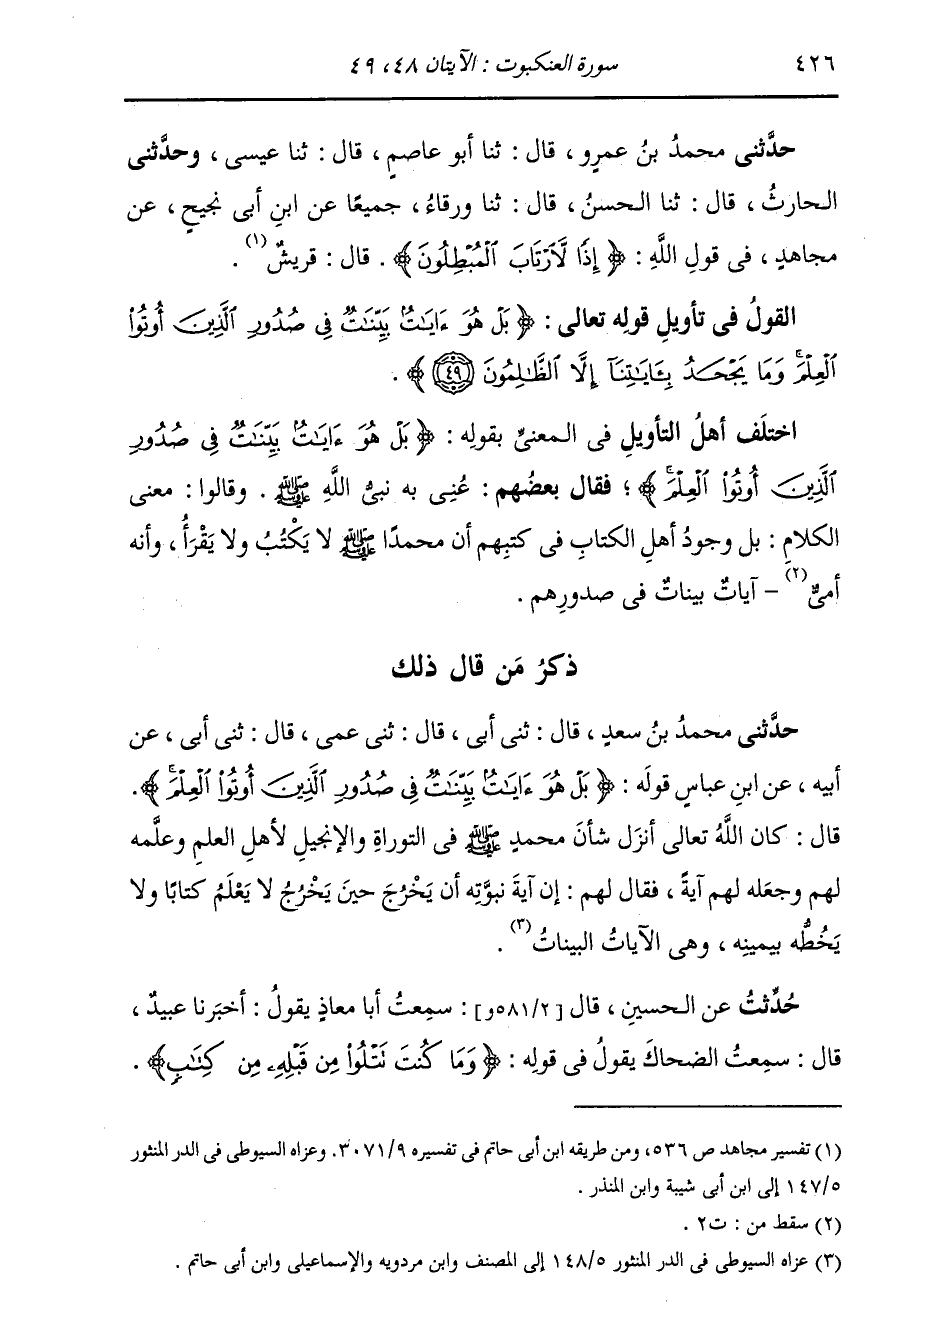 ٤٢٦ سورة العنكبوت : الآيتان ٤٨، ٤٩
حدَّثنى محمدُ بنُ عمرٍو ، قال : ثنا أبو عاصمٍ ، قال : ثنا عيسى ، وحدَّثنى
الحارثُ ، قال : ثنا الحسنُ ، قال : ثنا ورقاءُ ، جميعًا عن ابنِ أبى نجيحٍ ، عن
مجاهدٍ ، فى قولِ اللَّهِ : ﴿ إِذًا لَّٱرْتَابَ ٱلْمُبْطِلُونَ ﴾ . قال : قريشٌ (١) .
القولُ فى تأويلِ قولِه تعالى : ﴿ بَلْ هُوَ ءَايَٰتٌۢ بَيِّنَٰتٌ فِى صُدُورِ ٱلَّذِينَ أُوتُوا۟
ٱلْعِلْمَ ۚ وَمَا يَجْحَدُ بِـَٔايَٰتِنَآ إِلَّا ٱلظَّٰلِمُونَ ٤٩ ﴾ .
اختلَف أهلُ التأويلِ فى المعنىِّ بقولِه : ﴿ بَلْ هُوَ ءَايَٰتٌۢ بَيِّنَٰتٌ فِى صُدُورِ
ٱلَّذِينَ أُوتُوا۟ ٱلْعِلْمَ ۚ ﴾ ؛ فقال بعضُهم : عُنِى به نبىُّ اللَّهِ ﷺ . وقالوا : معنى
الكلامِ : بل وجودُ أهلِ الكتابِ فى كتبِهم أن محمدًا ﷺ لا يَكْتُبُ ولا يَقْرَأُ ، وأنه
أمىٌّ (٢) - آياتٌ بيناتٌ فى صدورِهم .
ذكرُ مَن قال ذلك
حدَّثنى محمدُ بنُ سعدٍ ، قال : ثنى أبى ، قال : ثنى عمى ، قال : ثنى أبى ، عن
أبيه ، عن ابنِ عباسٍ قولَه : ﴿ بَلْ هُوَ ءَايَٰتٌۢ بَيِّنَٰتٌ فِى صُدُورِ ٱلَّذِينَ أُوتُوا۟ ٱلْعِلْمَ ۚ ﴾ .
قال : كان اللَّهُ تعالى أنزَل شأنَ محمدٍ ﷺ فى التوراةِ والإنجيلِ لأهلِ العلمِ وعلَّمه
لهم وجعَله لهم آيةً ، فقال لهم : إن آيةَ نبوَّتِه أن يَخْرُجَ حينَ يَخْرُجُ لا يَعْلَمُ كتابًا ولا
يَخُطُّه بيمينِه ، وهى الآياتُ البيناتُ (٣) .
حُدِّثتُ عن الحسينِ ، قال [٥٨١/٢و] : سمِعتُ أبا معاذٍ يقولُ : أخبَرنا عبيدٌ ،
قال : سمِعتُ الضحاكَ يقولُ فى قولِه : ﴿ وَمَا كُنتَ تَتْلُوا۟ مِن قَبْلِهِۦ مِن كِتَٰبٍ ﴾ .
(١) تفسير مجاهد ص ٥٣٦، ومن طريقه ابن أبى حاتم فى تفسيره ٣٠٧١/٩. وعزاه السيوطى فى الدر المنثور
١٤٧/٥ إلى ابن أبى شيبة وابن المنذر .
(٢) سقط من : ت٢ .
(٣) عزاه السيوطى فى الدر المنثور ١٤٨/٥ إلى المصنف وابن مردويه والإسماعيلى وابن أبى حاتم .